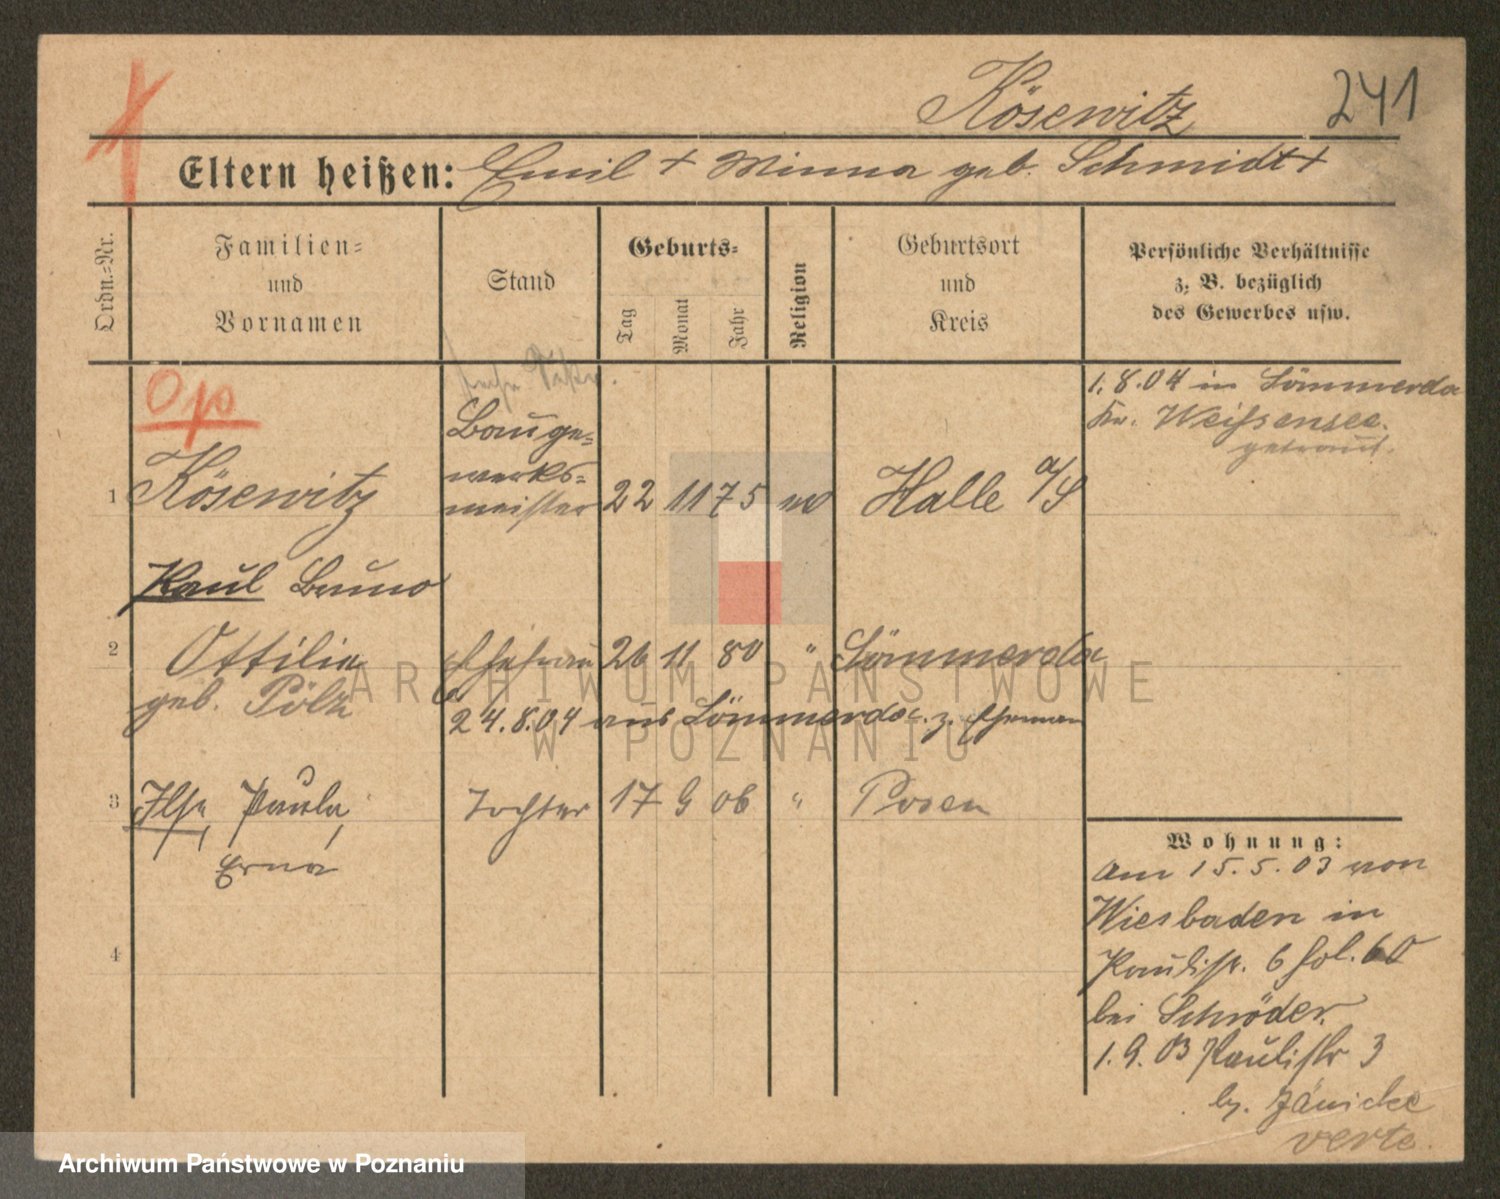 Kösewitz 241
Eltern heißen: Emil + Minna geb. Schmidt +
Ordn.=Nr.
Familien=
und
Vornamen
Stand
Geburts=
Tag
Monat
Jahr
Religion
Geburtsort
und
Kreis
Persönliche Verhältnisse
z. B. bezüglich
des Gewerbes usw.
1
Kösewitz
Paul Bruno
Bauge=
werks=
meister
22 11 75
Halle a/S
1.8.04 in Sömmerda
Kr. Weißensee
getraut.
2
Ottilie
geb. Pölz
Ehefrau 26 11 80 " Sömmerda
24.8.04 aus Sömmerda z. Ehemann
3
Ilse, Paula,
Erna
Tochter 17 9 06 " Posen
4
Wohnung:
Am 15.5.03 von
Wiesbaden in
Paulistr. 6 60
bei Schröder.
1.9.03 Paulistr 3
b. Jänicke
verte.
ARCHIWUM PAŃSTWOWE
W POZNANIU
Archiwum Państwowe w Poznaniu